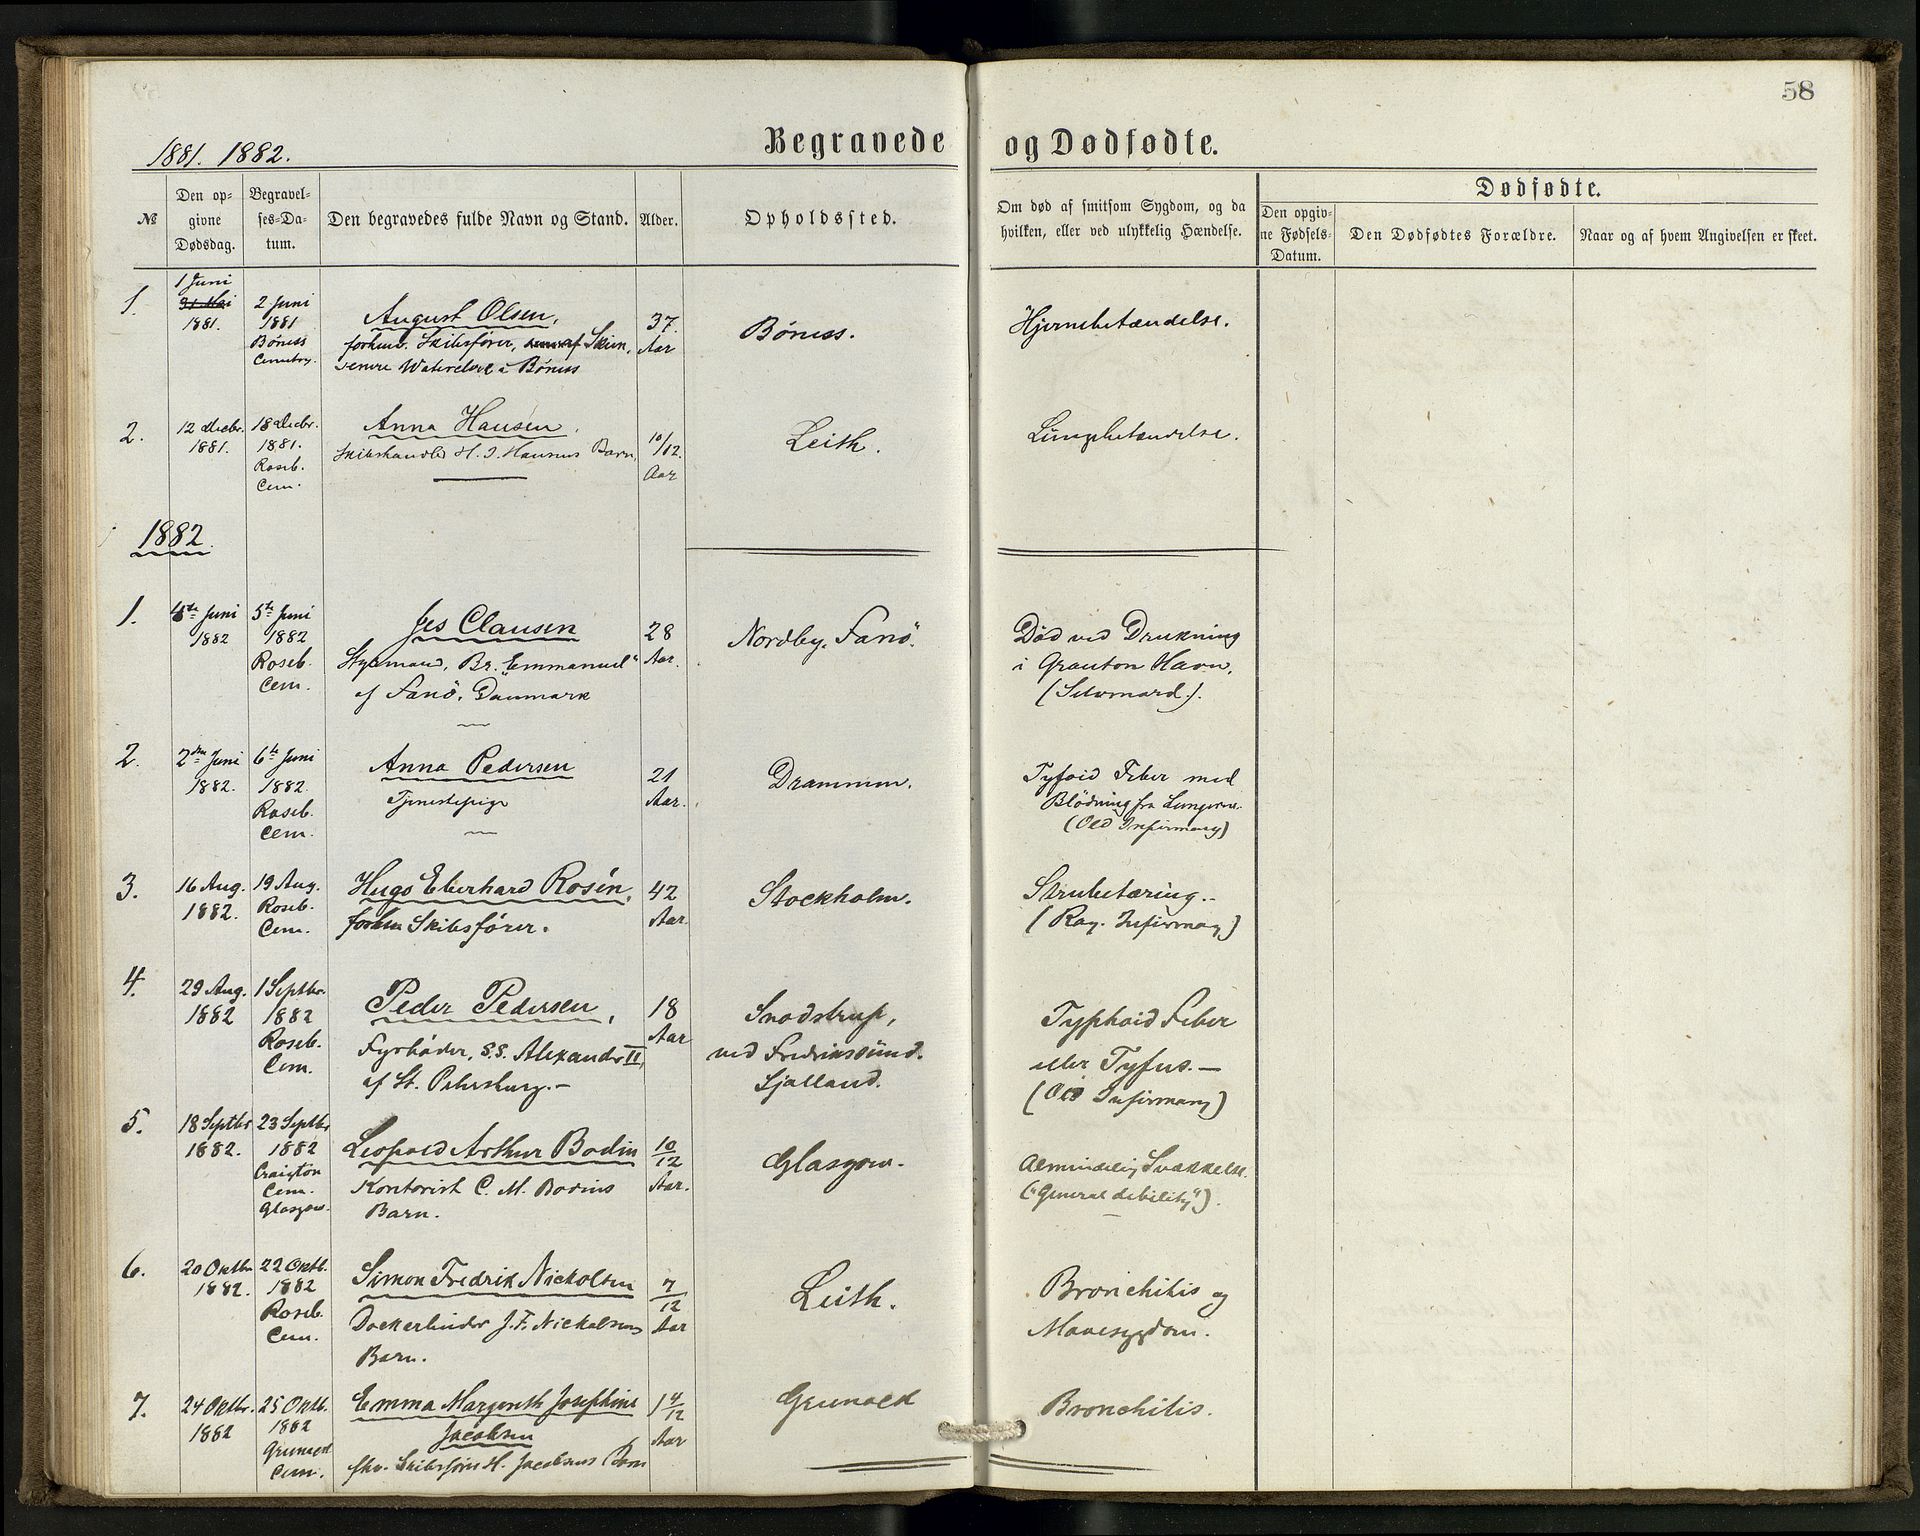 58
1881. 1882.
Begravede og Dødfødte.
№
Den op-
givne
Dødsdag.
Begravel-
ses-Da-
tum.
Den begravedes fulde Navn og Stand.
Alder.
Opholdssted.
Om død af smitsom Sygdom, og da
hvilken, eller ved ulykkelig Hændelse.
Dødfødte.
Den opgiv-
ne Fødsels-
Datum.
Den Dødfødtes Forældre.
Naar og af hvem Angivelsen er skeet.
1.
1 Juni
31 Mai
1881.
2 Juni
1881
Bóness
Cemetry.
August Olsen,
forhenv. Skibsfører, af Skien,
senere i Bóness
37.
Aar
Bóness.
Hjernebetændelse.
2.
12 Decbr.
1881.
18 Decbr.
1881.
Roseb.
Cem.
Anna Hansen.
Skibshandler H. J. Hansens Barn.
10/12.
Aar
Leith.
Lungebetændelse.
1882.
1.
4de Juni
1882
5te Juni
1882
Roseb.
Cem.
Jes Clausen
Styrmand, Br. "Emmanuel"
af Fanö, Danmark
28
Aar.
Nordby, Fanö.
Død ved Drukning
i Granton Havn.
(Selvmord.).
2.
2den Juni
1882.
6te Juni
1882.
Roseb.
Cem.
Anna Pedersen
Tjenestepige
21
Aar.
Drammen.
Tyfoid Feber med
Blödning fra Lungerne.
(Old Infirmary)
3.
16 Aug.
1882.
19 Aug.
Roseb.
Cem.
Hugo Eberhard Rosén,
forhen Skibsfører.
42
Aar
Stockholm.
Strubetæring.
(Roy. Infirmary)
4.
29 Aug.
1882
1 Septbr.
1882
Roseb.
Cem.
Peder Pedersen,
Fyrbøder, S.S. Alexander II,
af St. Petersburg.-
18
Aar
Snodstrup,
ved Fredrikssund.
Sjælland.
Typhoid Feber
eller Tyfus. -
(Old Infirmary)
5.
18 Septbr
1882.
23 Septbr
1882
Craigton
Cem.
Glasgow.
Leopold Arthur Bodin
Kontorist C. M. Bodins
Barn.
10/12
Aar.
Glasgow.
Almindelig Svækkelse.
("General debility").
6.
20 Oktbr
1882.
22 Oktb.
1882
Roseb.
Cem.
Simon Fredrik Nickolsen
J. F. Nickolsens
Barn.
7/12
Aar
Leith.
Bronchitis og
Mavesygdom.
7.
24 Oktbr.
1882
25 Oktb.
1882
Cem.
Emma Margreth Josephine
Jacobsen
fhv. Skibsfører H. Jacobsens Barn
1 4/12
Aar
Bronchitis.